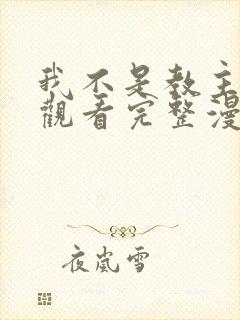 我不是教主
觀看完整漫
夜嵐雪